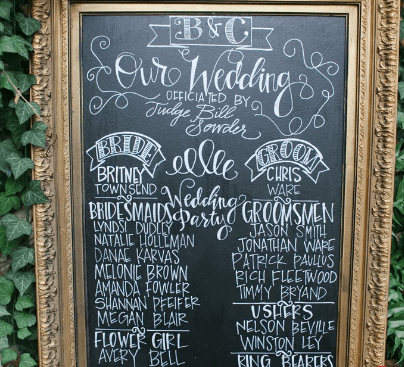 B & C
Our Wedding
OFFICIATED BY
Judge Bill
Lowder
BRIDE
BRITNEY
TOWNSEND
GROOM
CHRIS
WARE
Wedding
Party
BRIDESMAIDS
LYNDSI DUDLEY
NATALIE HOLLEMAN
DANAE KARVAS
MELONIE BROWN
AMANDA FOWLER
SHANNAN PFEIFER
MEGAN BLAIR
FLOWER GIRL
AVERY BELL
GROOMSMEN
JASON SMITH
JONATHAN WARE
PATRICK PAULUS
RICH FLEETWOOD
TIMMY BRYAND
USHERS
NELSON BEVILLE
WINSTON LEY
RING BEARERS